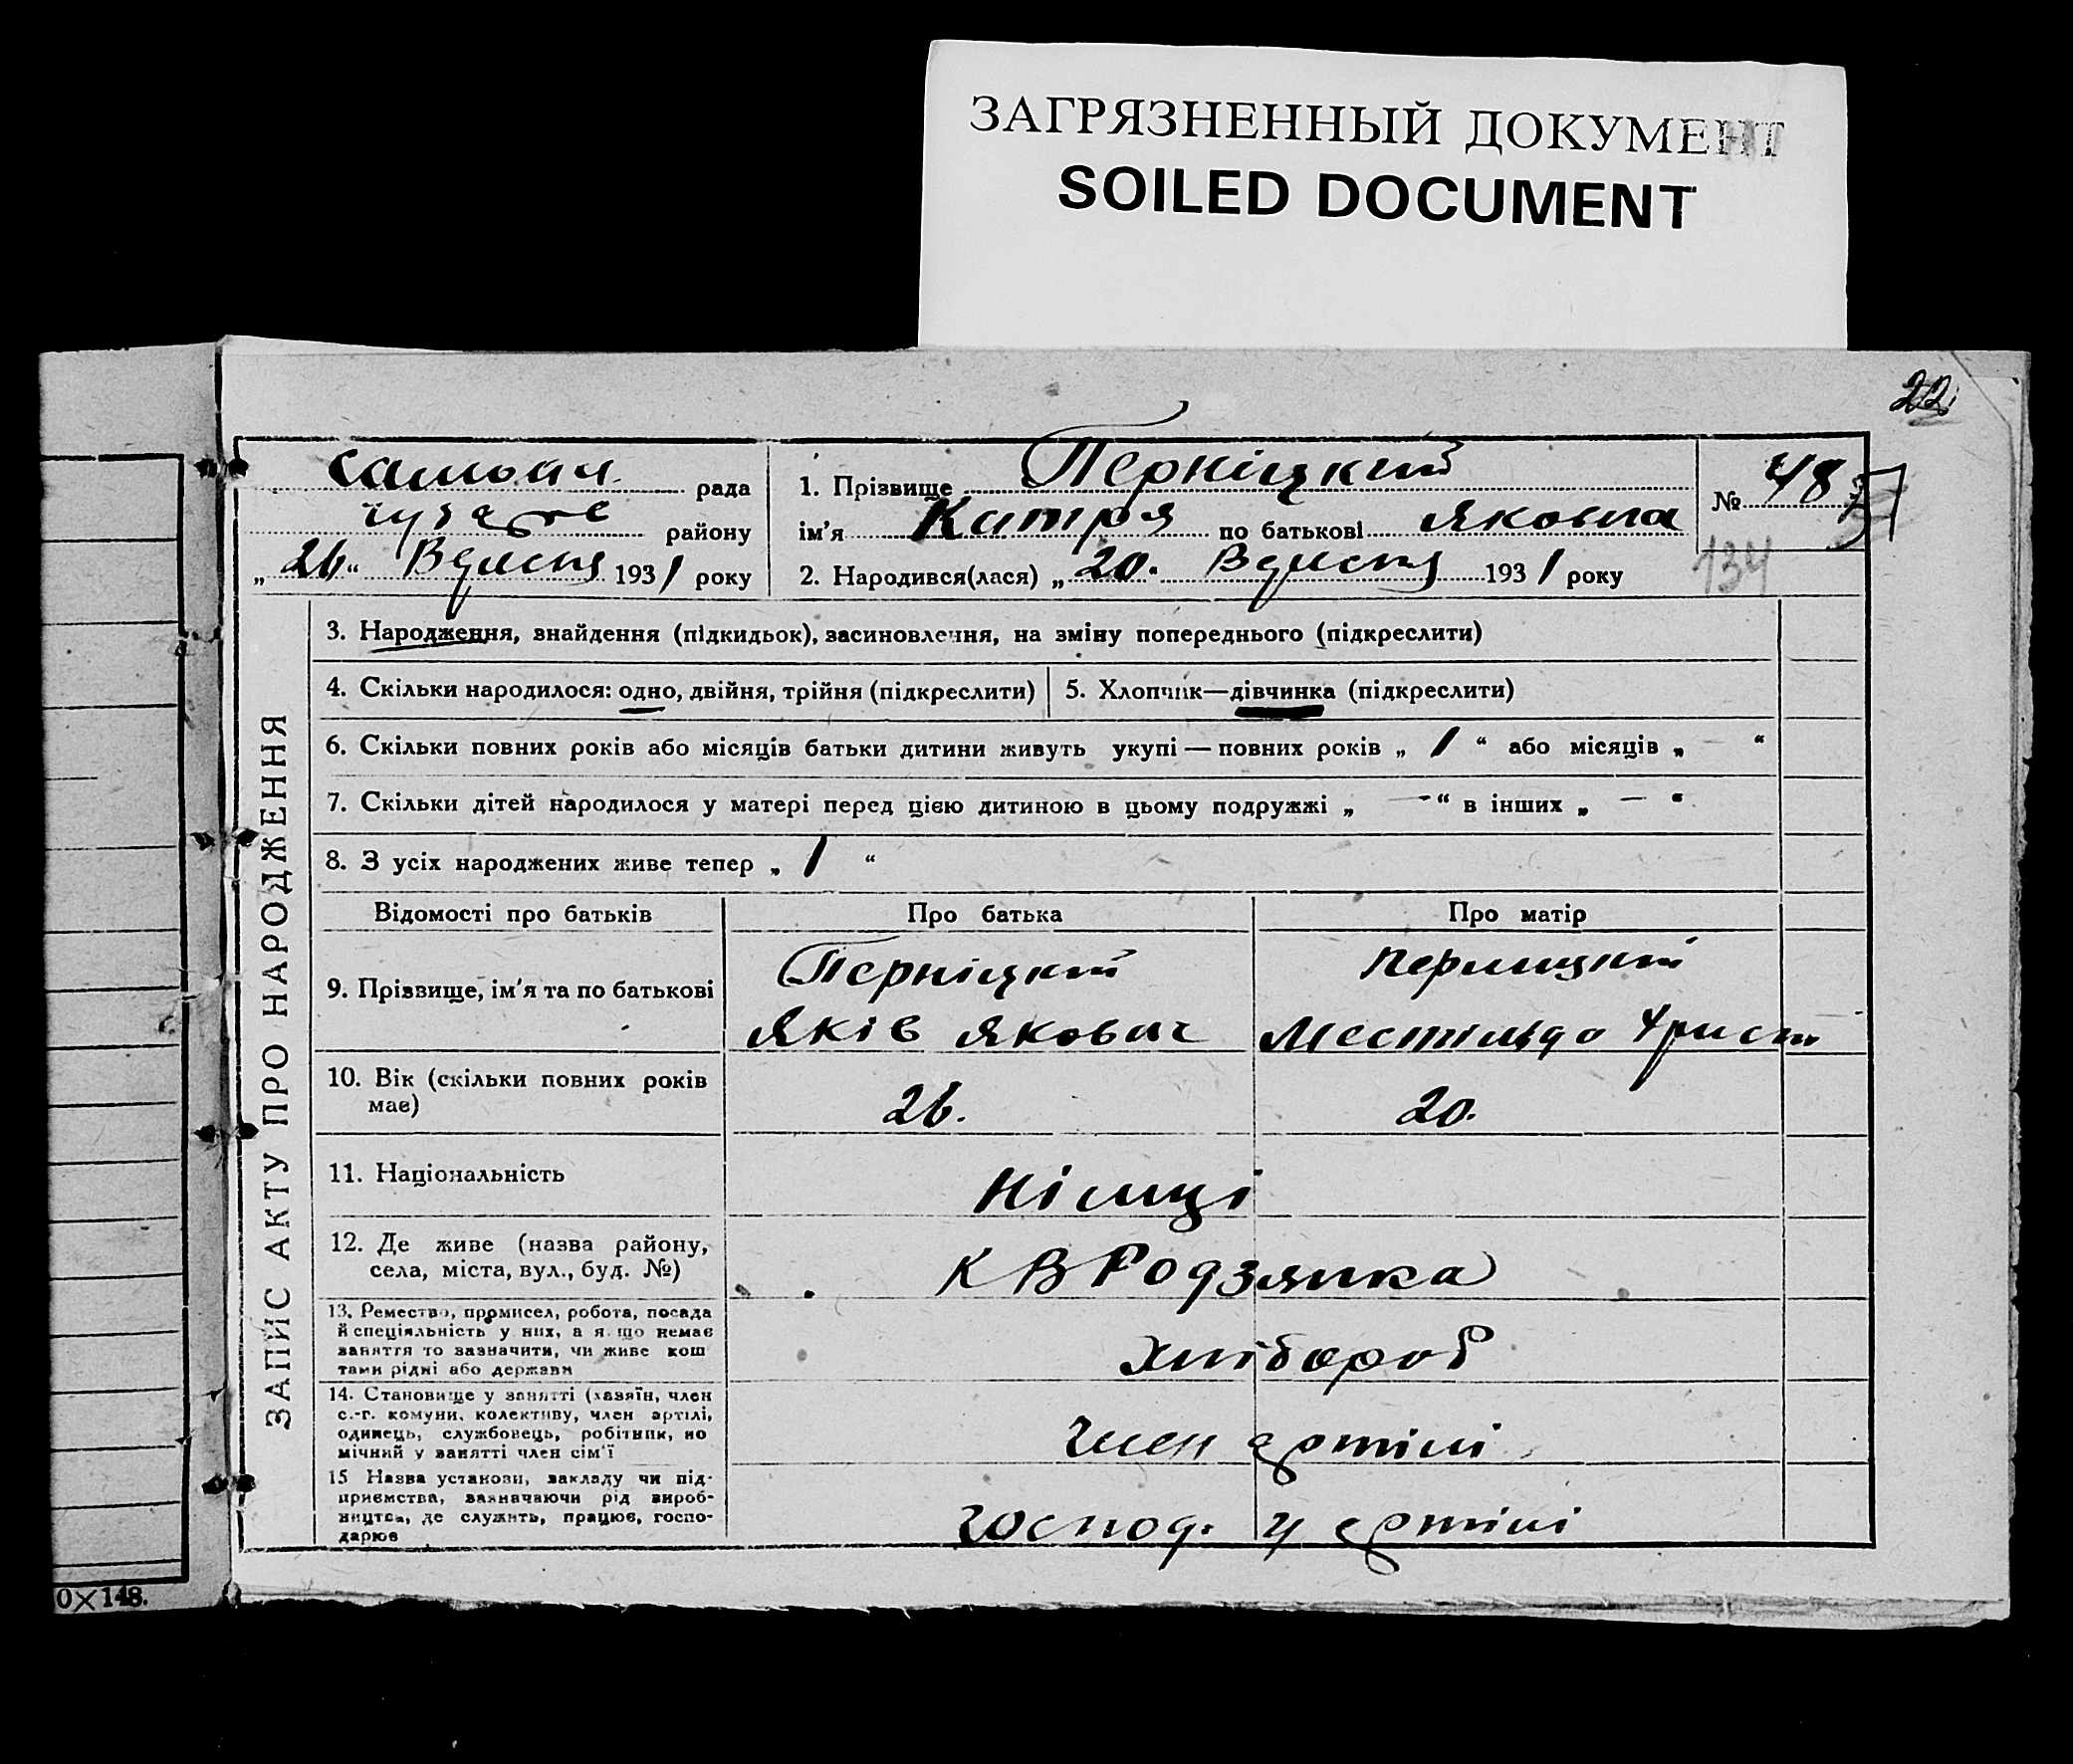 ЗАГРЯЗНЕННЫЙ ДОКУМЕНТ
SOILED DOCUMENT
22
рада
району
„26“ Вересня 1931 року
1. Прізвище Перніцкий
ім'я Катря по батькові Яковна
2. Народився(лася) „20. Вересня 1931 року
№ 48
134
ЗАПИС АКТУ ПРО НАРОДЖЕННЯ
3. Народження, знайдення (підкидьок), засиновлення, на зміну попереднього (підкреслити)
4. Скільки народилося: одно, двійня, трійня (підкреслити)
5. Хлопчик—дівчинка (підкреслити)
6. Скільки повних років або місяців батьки дитини живуть укупі — повних років „ 1 “ або місяців „ “
7. Скільки дітей народилося у матері перед цією дитиною в цьому подружжі „ — “ в інших „ — “
8. З усіх народжених живе тепер „ 1 “
Відомості про батьків
Про батька
Про матір
9. Прізвище, ім'я та по батькові
Перніцкий
Яків Якович
Перницкий
10. Вік (скільки повних років
має)
26.
20.
11. Національність
Німці
12. Де живе (назва району,
села, міста, вул., буд. №)
К В Родзянка
13. Ремество, промисел, робота, посада
й спеціяльність у них, а якщо немає
заняття то зазначити, чи живе кош
тами рідні або держави
Хлібороб
14. Становище у занятті (хазяїн, член
с.-г. комуни, колективу, член артілі,
одинець, службовець, робітник, по
мічний у занятті член сім'ї
Член артілі
15 Назва установи, закладу чи під-
приємства, зазначаючи рід вироб-
ництва, де служить, працює, госпо-
дарює
Господ. у артілі
0×148.